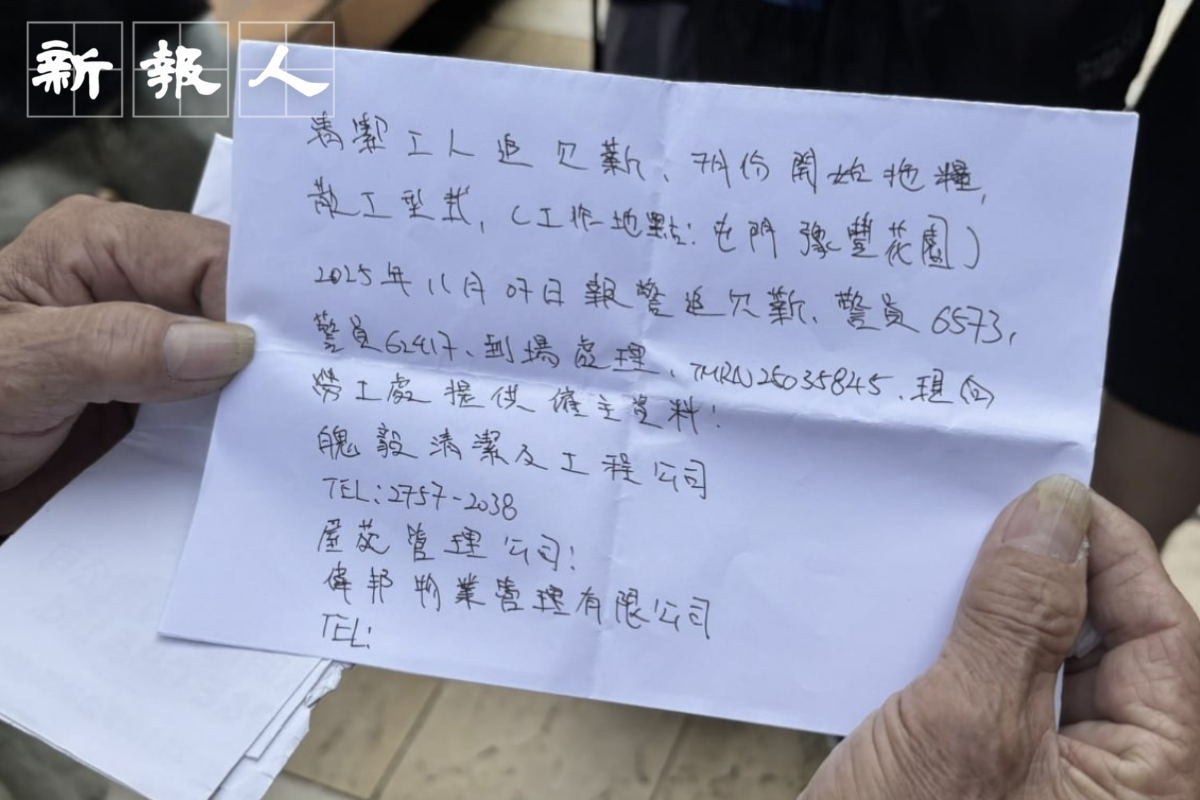 新報人
清潔工人追欠薪、7月份開始拖糧,
散工型式,(工作地點:屯門豫豐花園)
2025年11月07日報警追欠薪、警員6573,
警員62417、到場處理、TMRN25035845.現向
勞工處提供僱主資料:
毅清潔及工程公司
TEL:2757-2038
屋苑管理公司:
偉邦物業管理有限公司
TEL: